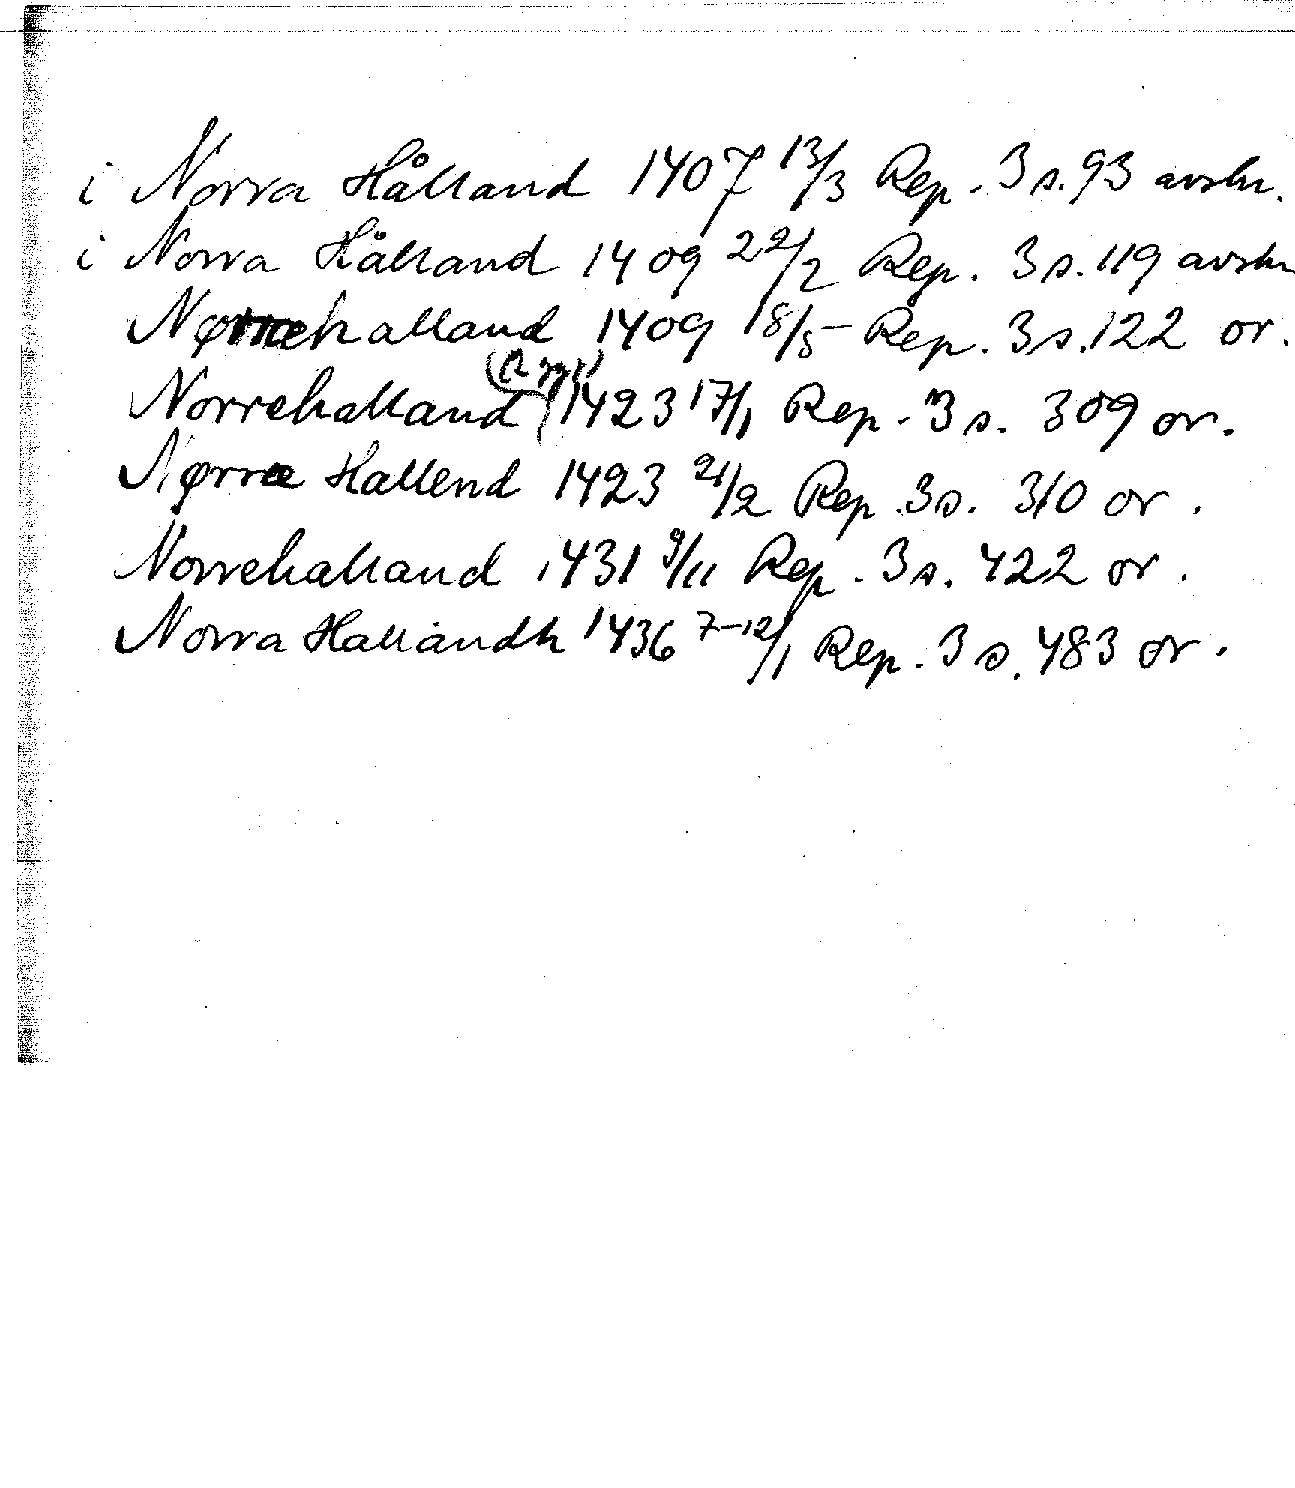 i Norra Hålland 1407 13/3 Rep. 3 s. 93 avskr.
i Norra Hålland 1409 22/2 Rep. 3 s. 119 avskr
Nørrehalland 1409 18/5 Rep. 3 s. 122 or.
Norrehalland 1423 17/1 Rep. 3 s. 309 or.
Nørræ Hallend 1423 21/2 Rep. 3 s. 310 or.
Norrehalland 1431 9/11 Rep. 3 s. 422 or.
Norra Hallandh 1436 7-12/1 Rep. 3 s. 483 or.